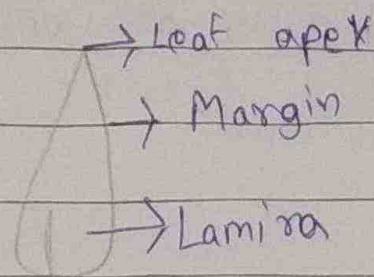 Leaf apex
Margin
Lamina